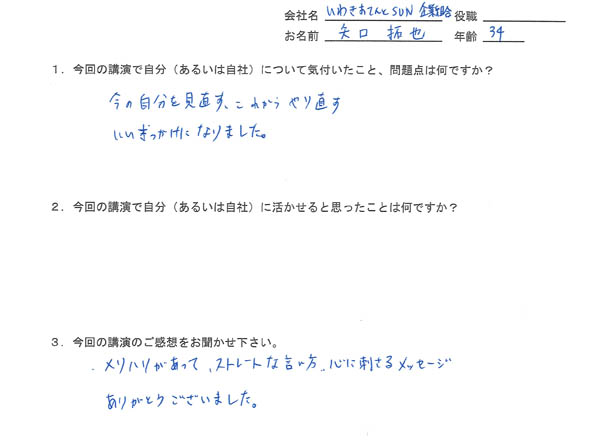 会社名 いわきあてんとSUN 企業組合 役職
お名前 矢口 拓也 年齢 34
1．今回の講演で自分（あるいは自社）について気付いたこと、問題点は何ですか？
今の自分を見直す、これからやり直す
いいきっかけになりました。
2．今回の講演で自分（あるいは自社）に活かせると思ったことは何ですか？
3．今回の講演のご感想をお聞かせ下さい。
メリハリがあって、ストレートな言い方、心に刺さるメッセージ
ありがとうございました。